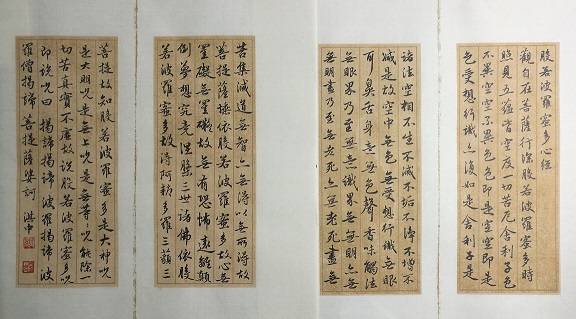 般若波羅蜜多心經
觀自在菩薩行深般若波羅蜜多時
照見五蘊皆空度一切苦厄舍利子色
不異空空不異色色即是空空即是
色受想行識亦復如是舍利子是
諸法空相不生不滅不垢不淨不增不
減是故空中無色無受想行識無眼
耳鼻舌身意無色聲香味觸法
無眼界乃至無意識界無無明亦無
無明盡乃至無老死亦無老死盡無
苦集滅道無智亦無得以無所得故
菩提薩埵依般若波羅蜜多故心無
罣礙無罣礙故無有恐怖遠離顛
倒夢想究竟涅槃三世諸佛依般
若波羅蜜多故得阿耨多羅三藐三
菩提故知般若波羅蜜多是大神咒
是大明咒是無上咒是無等等咒能除一
切苦真實不虛故說般若波羅蜜多咒
即說咒曰 揭諦揭諦波羅揭諦波
羅僧揭諦 菩提薩婆訶 洪中